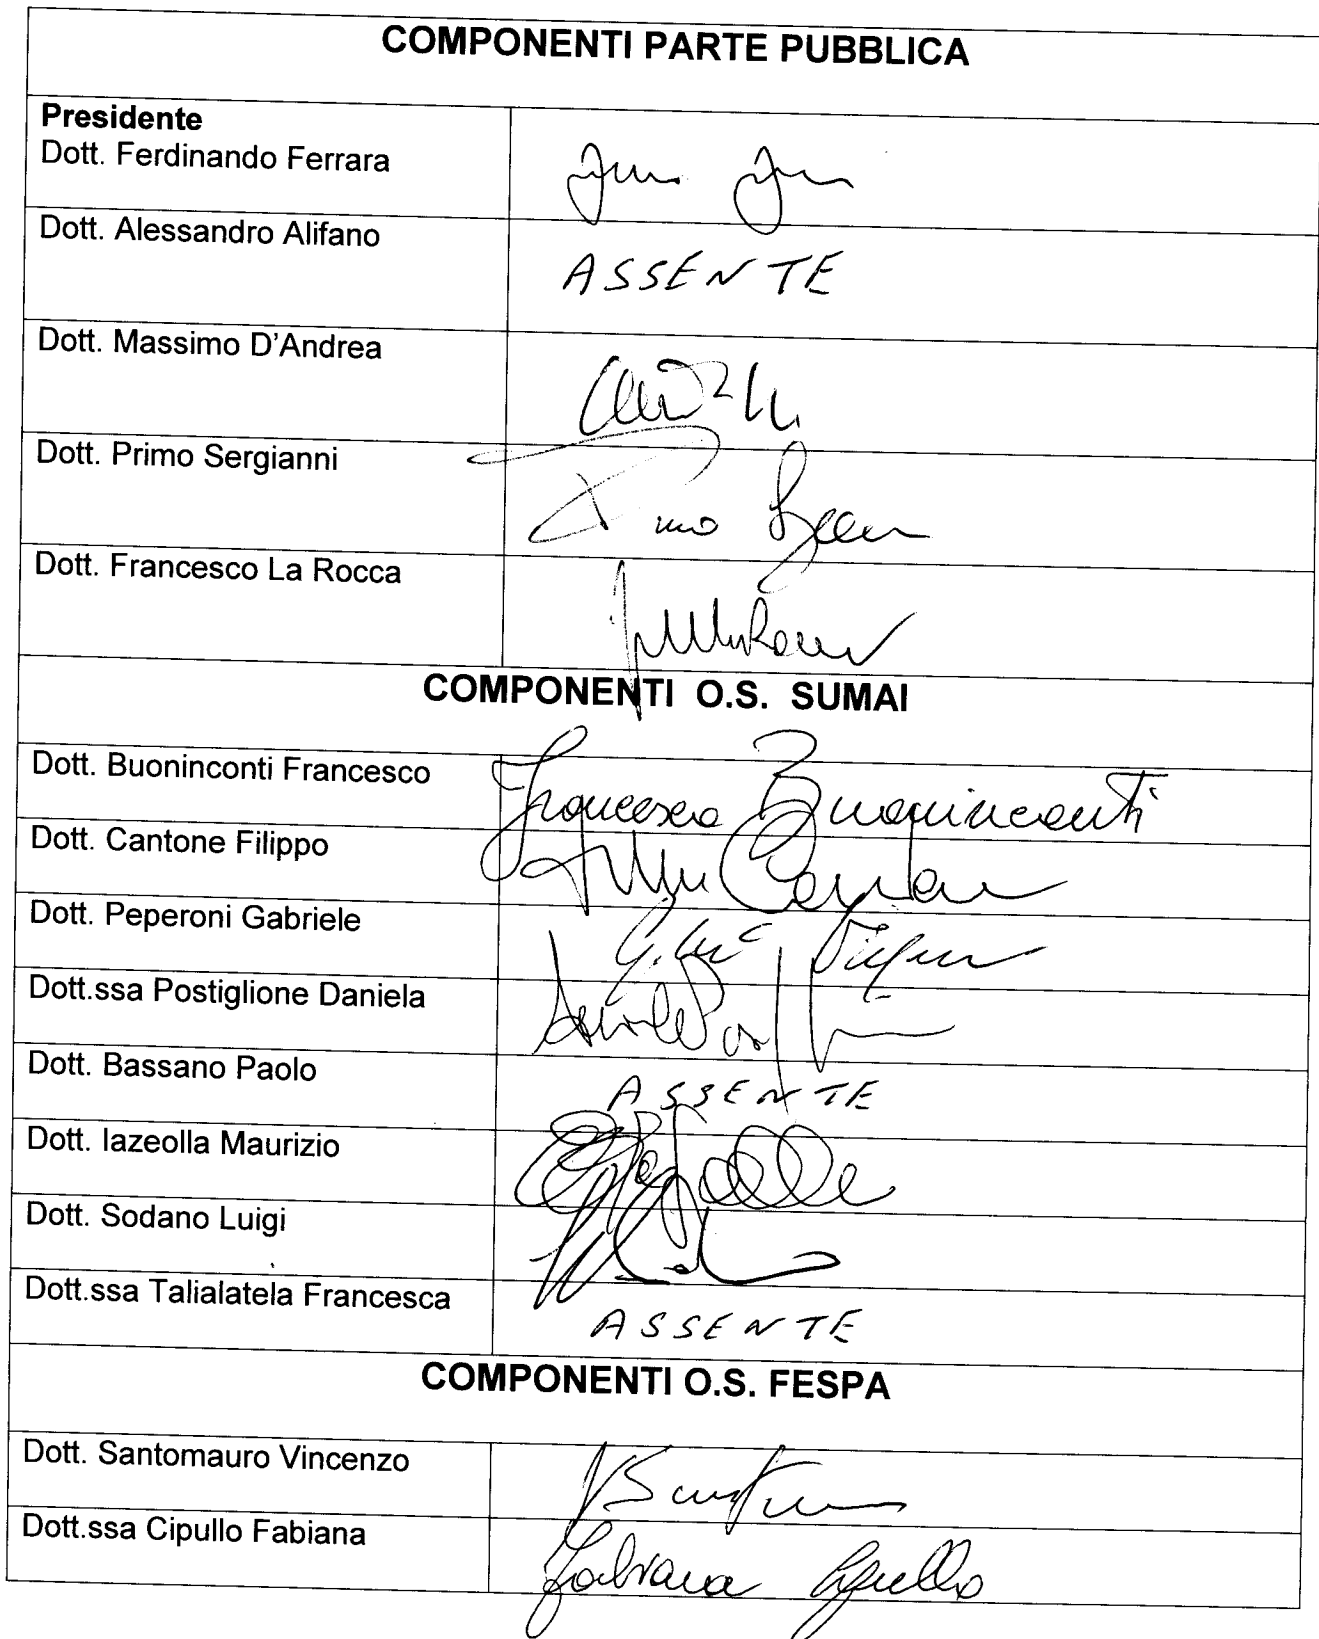 COMPONENTI PARTE PUBBLICA
Presidente
Dott. Ferdinando Ferrara
Dott. Alessandro Alifano
ASSENTE
Dott. Massimo D'Andrea
Dott. Primo Sergianni
Dott. Francesco La Rocca
COMPONENTI O.S. SUMAI
Dott. Buoninconti Francesco
Francesco Buoninconti
Dott. Cantone Filippo
Dott. Peperoni Gabriele
Dott.ssa Postiglione Daniela
Dott. Bassano Paolo
ASSENTE
Dott. Iazeolla Maurizio
Dott. Sodano Luigi
Dott.ssa Talialatela Francesca
ASSENTE
COMPONENTI O.S. FESPA
Dott. Santomauro Vincenzo
Dott.ssa Cipullo Fabiana
Fabiana Cipullo